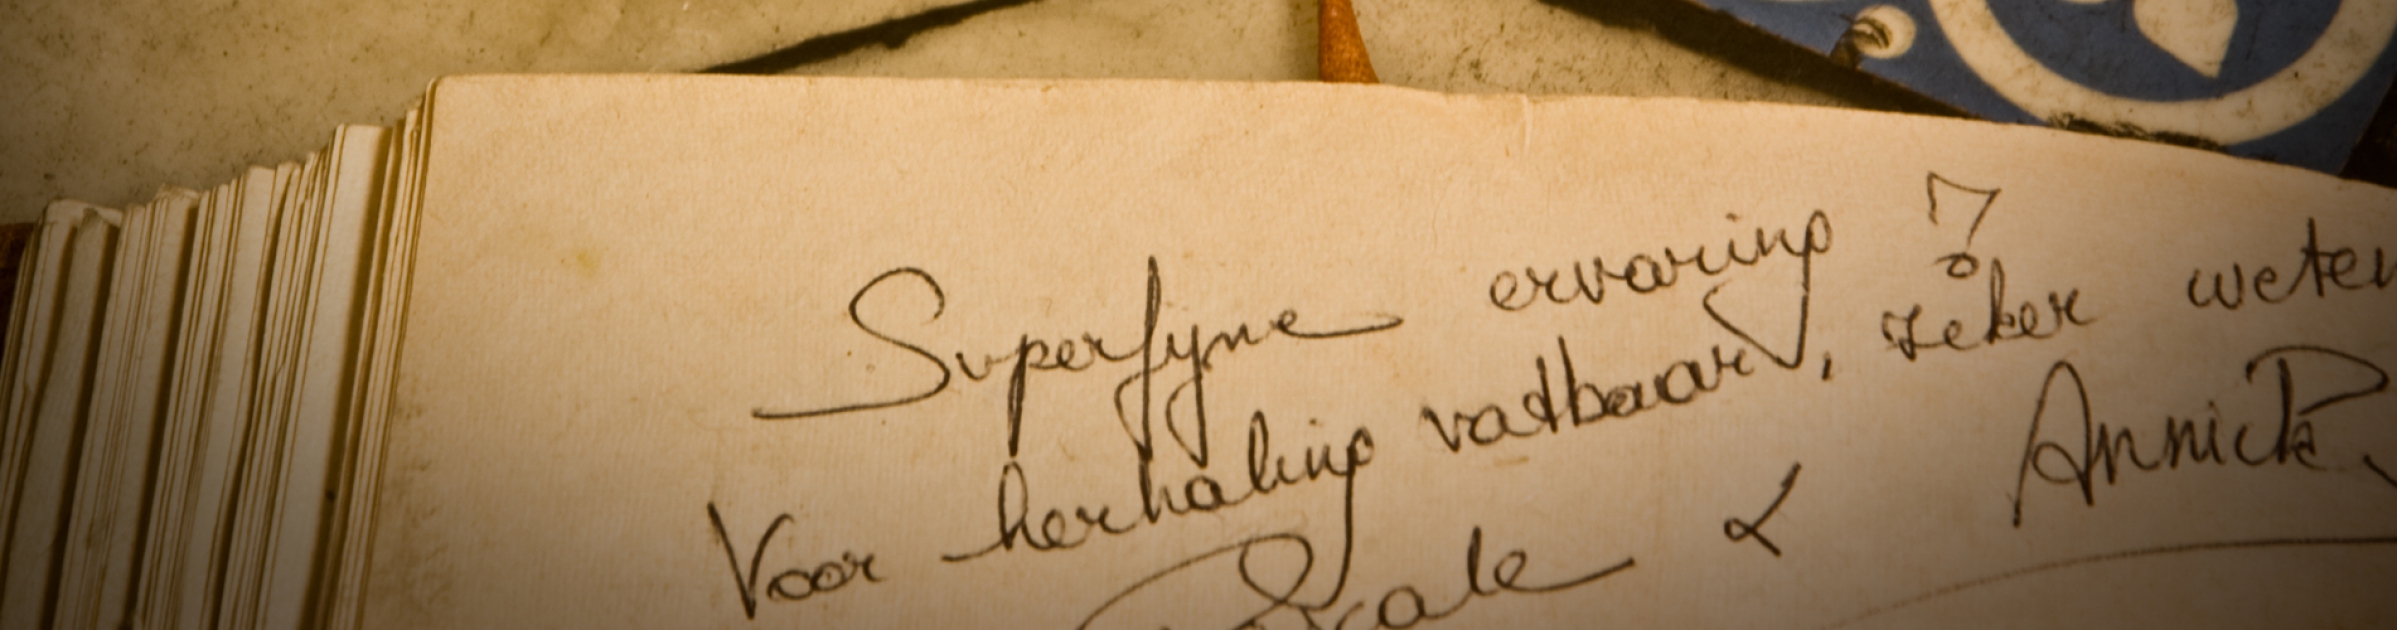 Superfyne ervaring !
Voor herhaling vatbaar, zeker weten
& Annick